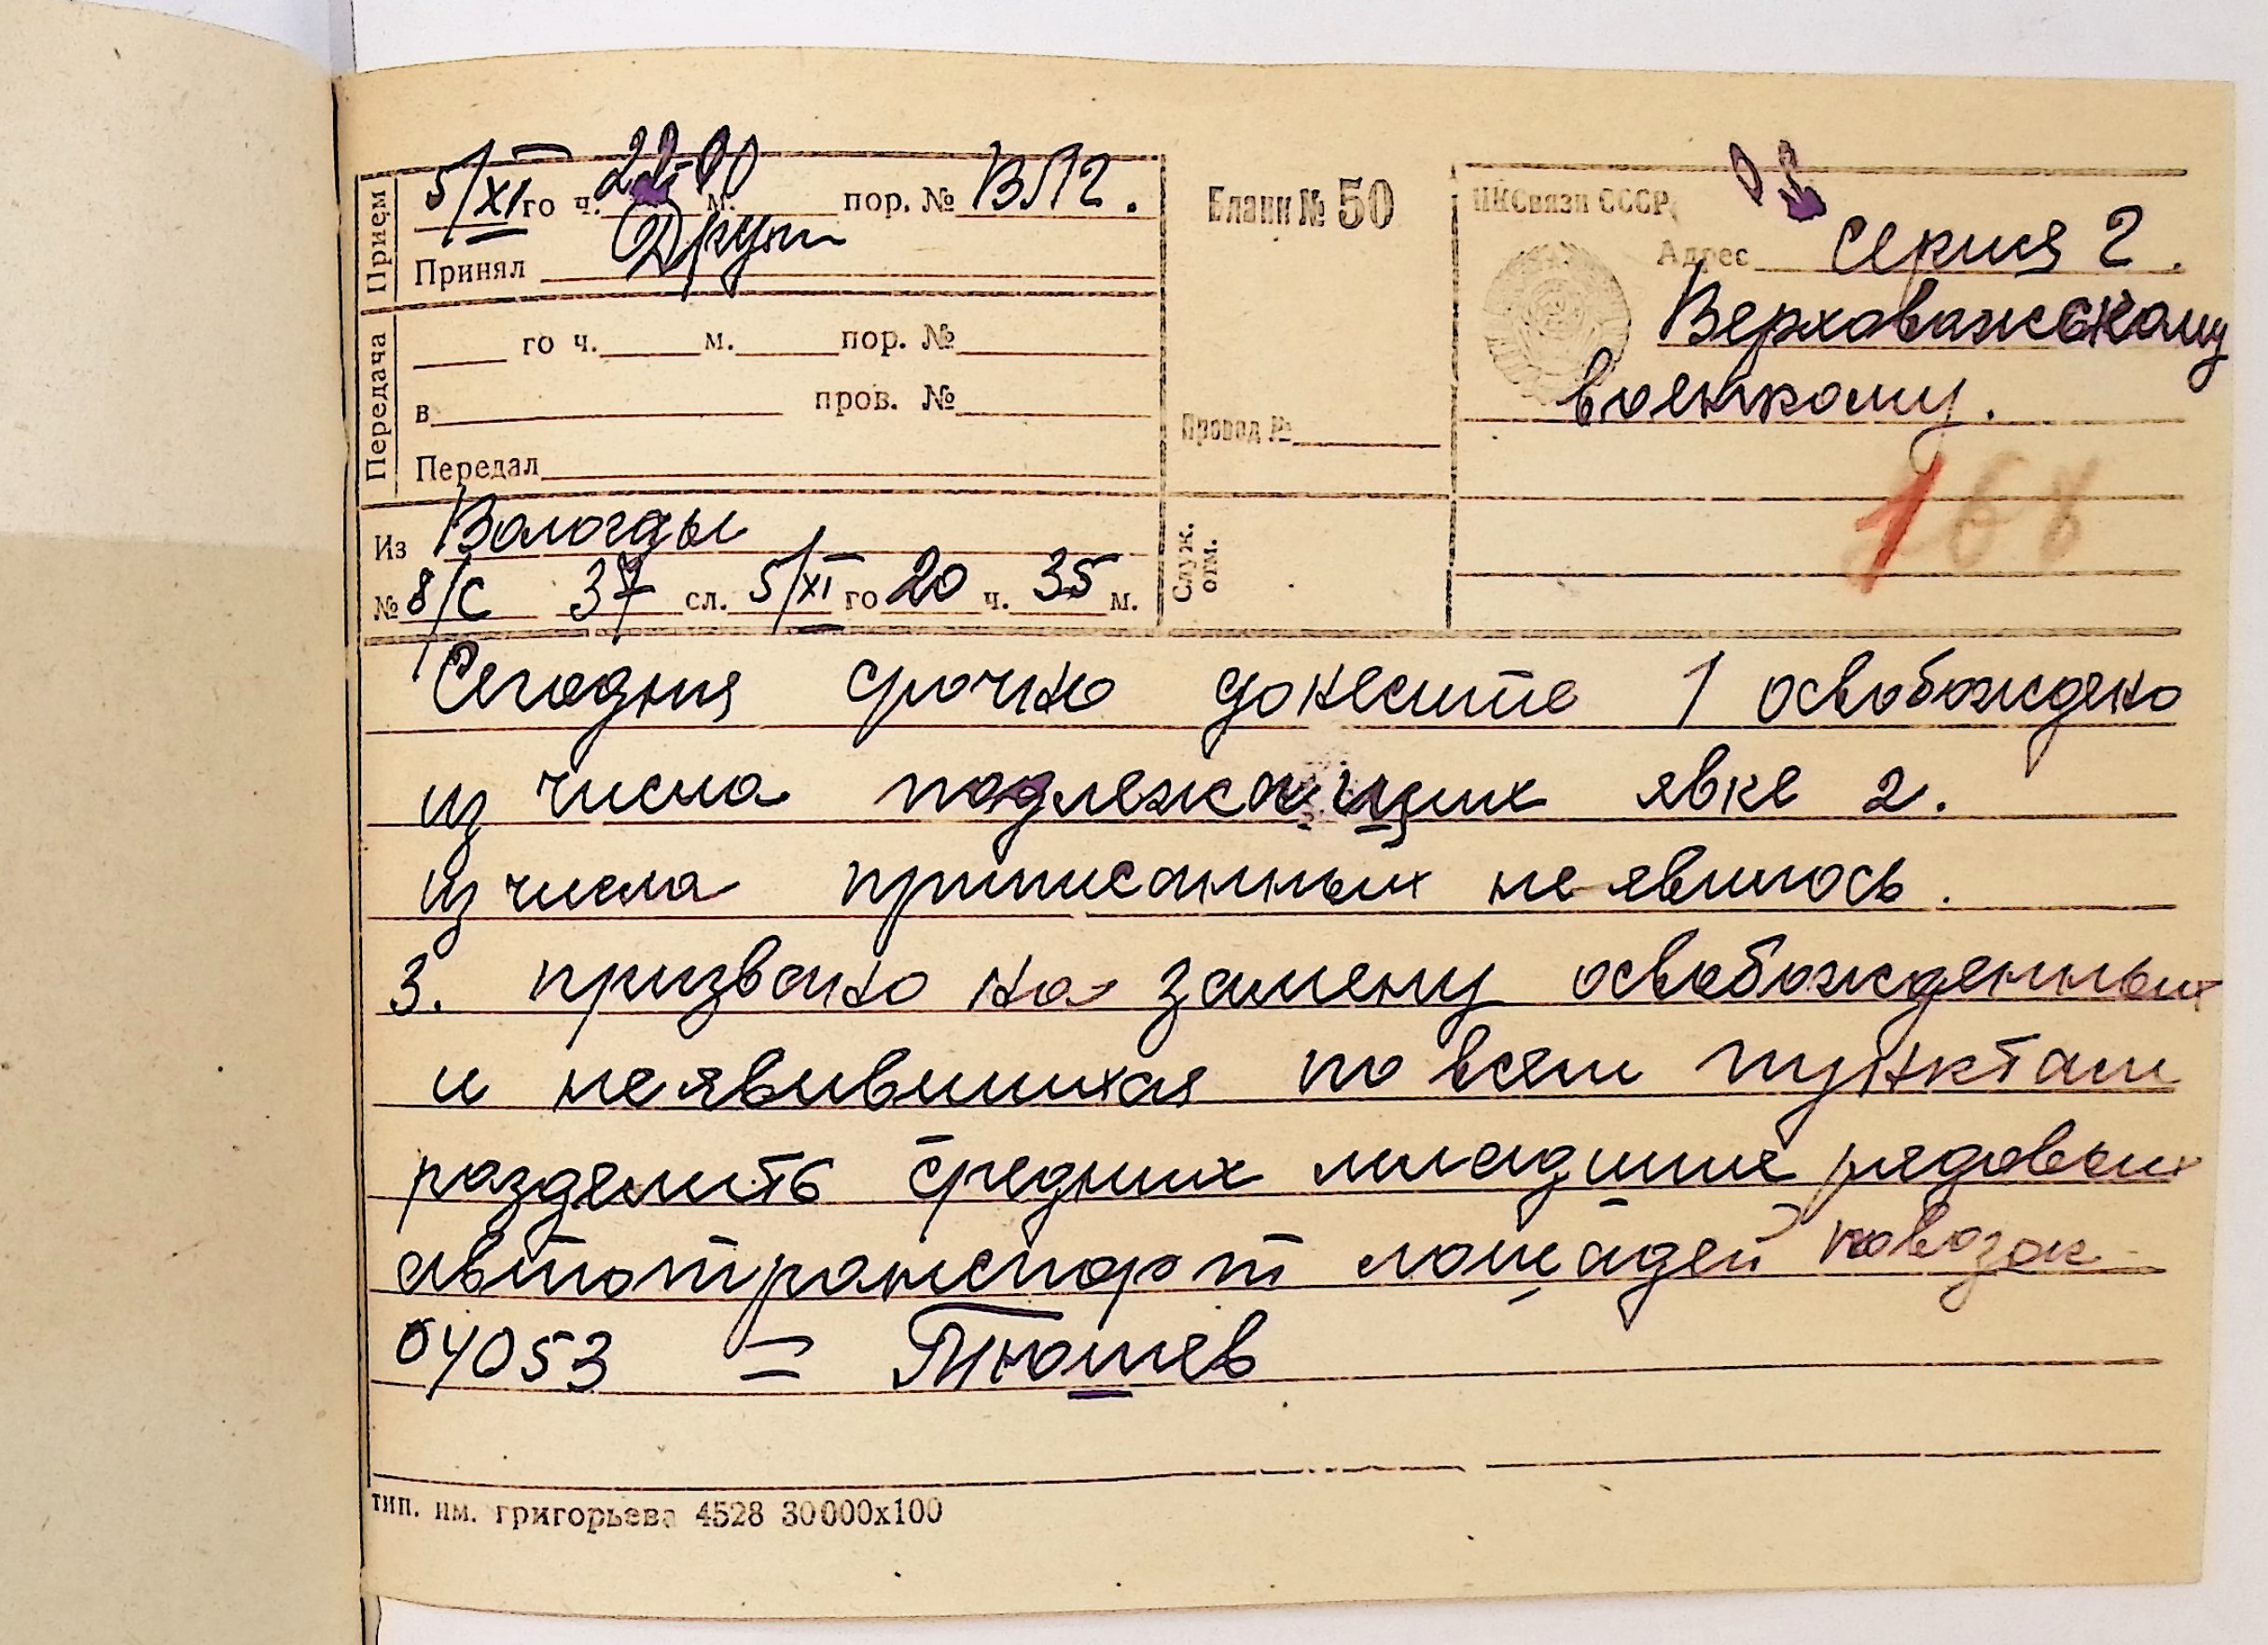 Прием
5/XI го ч. 22-00 м. пор. № ВЛ2.
Принял
Передача
го ч. м. пор. №
в пров. №
Передал
Из Вологды
№ 8/с 37 сл. 5/XI го 20 ч. 35 м.
Бланк № 50
Провод №
Служ. отм.
НКСвязи СССР
Адрес Серия 2.
Верховажскому
военкому.
168
Сегодня срочно донесите 1 освобождено
из числа подлежащих явке 2.
из числа приписанных не явилось.
3. призвано на замену освобожденных
и неявившихся по всем пунктам
разделить средних младших рядовых
автотранспорт лошадей повозок
04053 = Тнюшев
тип. им. григорьева 4528 30000х100